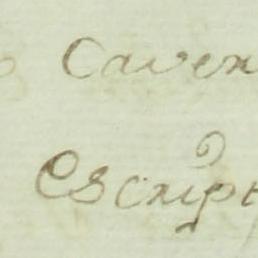 Caven
Escript